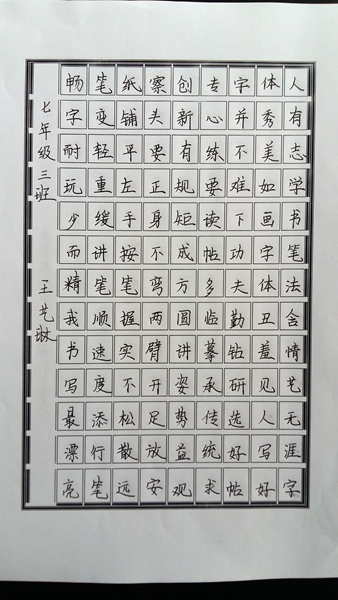 人有志学书笔法含情艺无涯字
体秀美如画字体丑羞见人写好
字并不难下功夫勤钻研选好帖
专心练要读帖多临摹承传统求
创新有规短成方圆讲姿势益观
察头要正身不弯两臂开足放安
纸铺平左手按笔握实不松散远
笔变轻重缓讲笔顺速度添行笔
畅字耐玩少而精我书写最漂亮
七年级三班 王艺琳